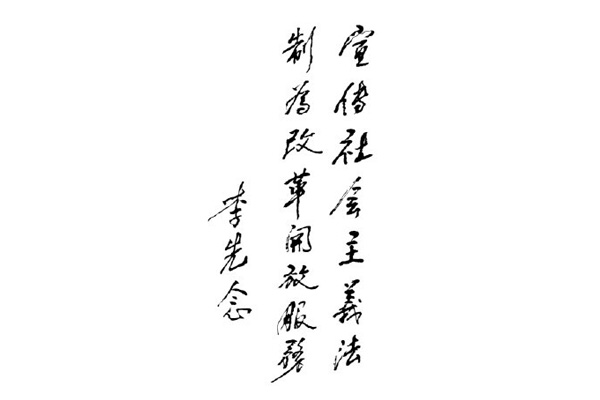 宣傳社会主義法
制為改革開放服務
李先念